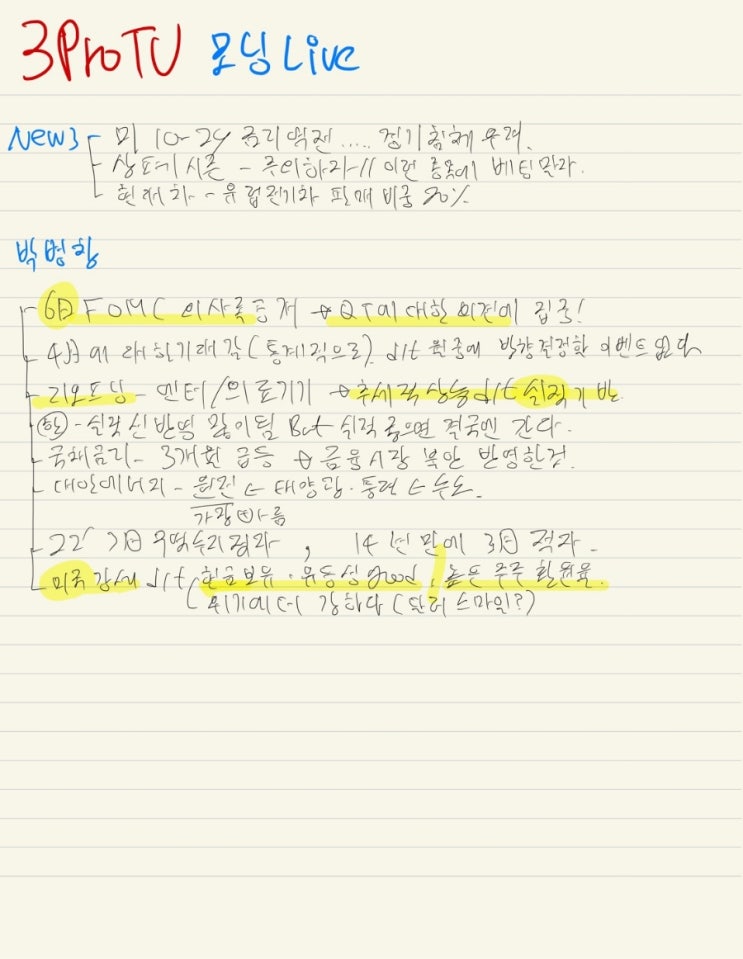 3ProTV 모닝 Live
News - 미 10-2y 금리역전..... 경기침체 우려.
- 상폐시즌 - 주의하자!! 이런 종목에 베팅말라.
- 현대차 - 유럽전기차 판매 비중 20%
박병창
- 6日 FOMC 의사록공개 → QT에 대한 의견에 집중!
- 4月에 대한 기대감(통계적으로) but 월중에 방향결정할 이벤트 없다
- 리오프닝 - 엔터/의료기기 → 추세적상승 but 실적기반
- 실적 선반영 많이됨 But 실적 좋으면 결국엔 간다.
- 국채금리 - 3개월 급등 → 금융시장 불안 반영한것.
- 대안에너지 - 원전 ← 태양광·풍력 ← 수소.
가장 빠름
- 22' 무역수지적자, 14년만에 3月 적자.
- 미국강세 but 현금보유·유동성 good, 높은 주주환원율.
위기에 더 강하다 (달러 스마일?)